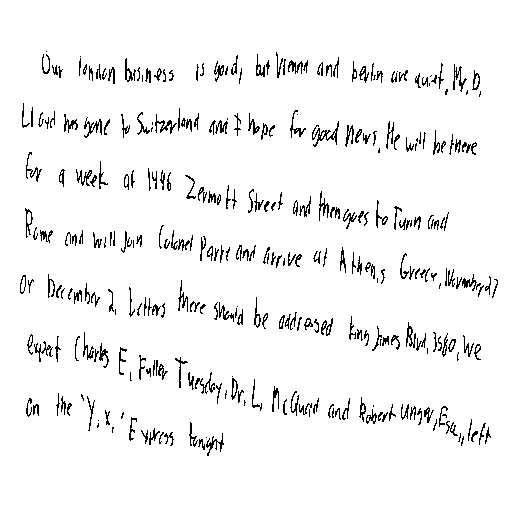 Our london business is good, but Vienna and berlin are quiet. Mr. D.
Lloyd has gone to Switzerland and I hope for good news. He will be there
for a week at 1496 Zermott Street and then goes to Turin and
Rome and will join Colonel Parre and arrive at Athens, Greece, November 27
or December 2. Letters there should be addressed King James Blvd. 3580. We
expect Charles E. Fuller Tuesday. Dr. L. McQuaid and Robert Unger, Esq., left
on the 'Y.X.' Express tonight